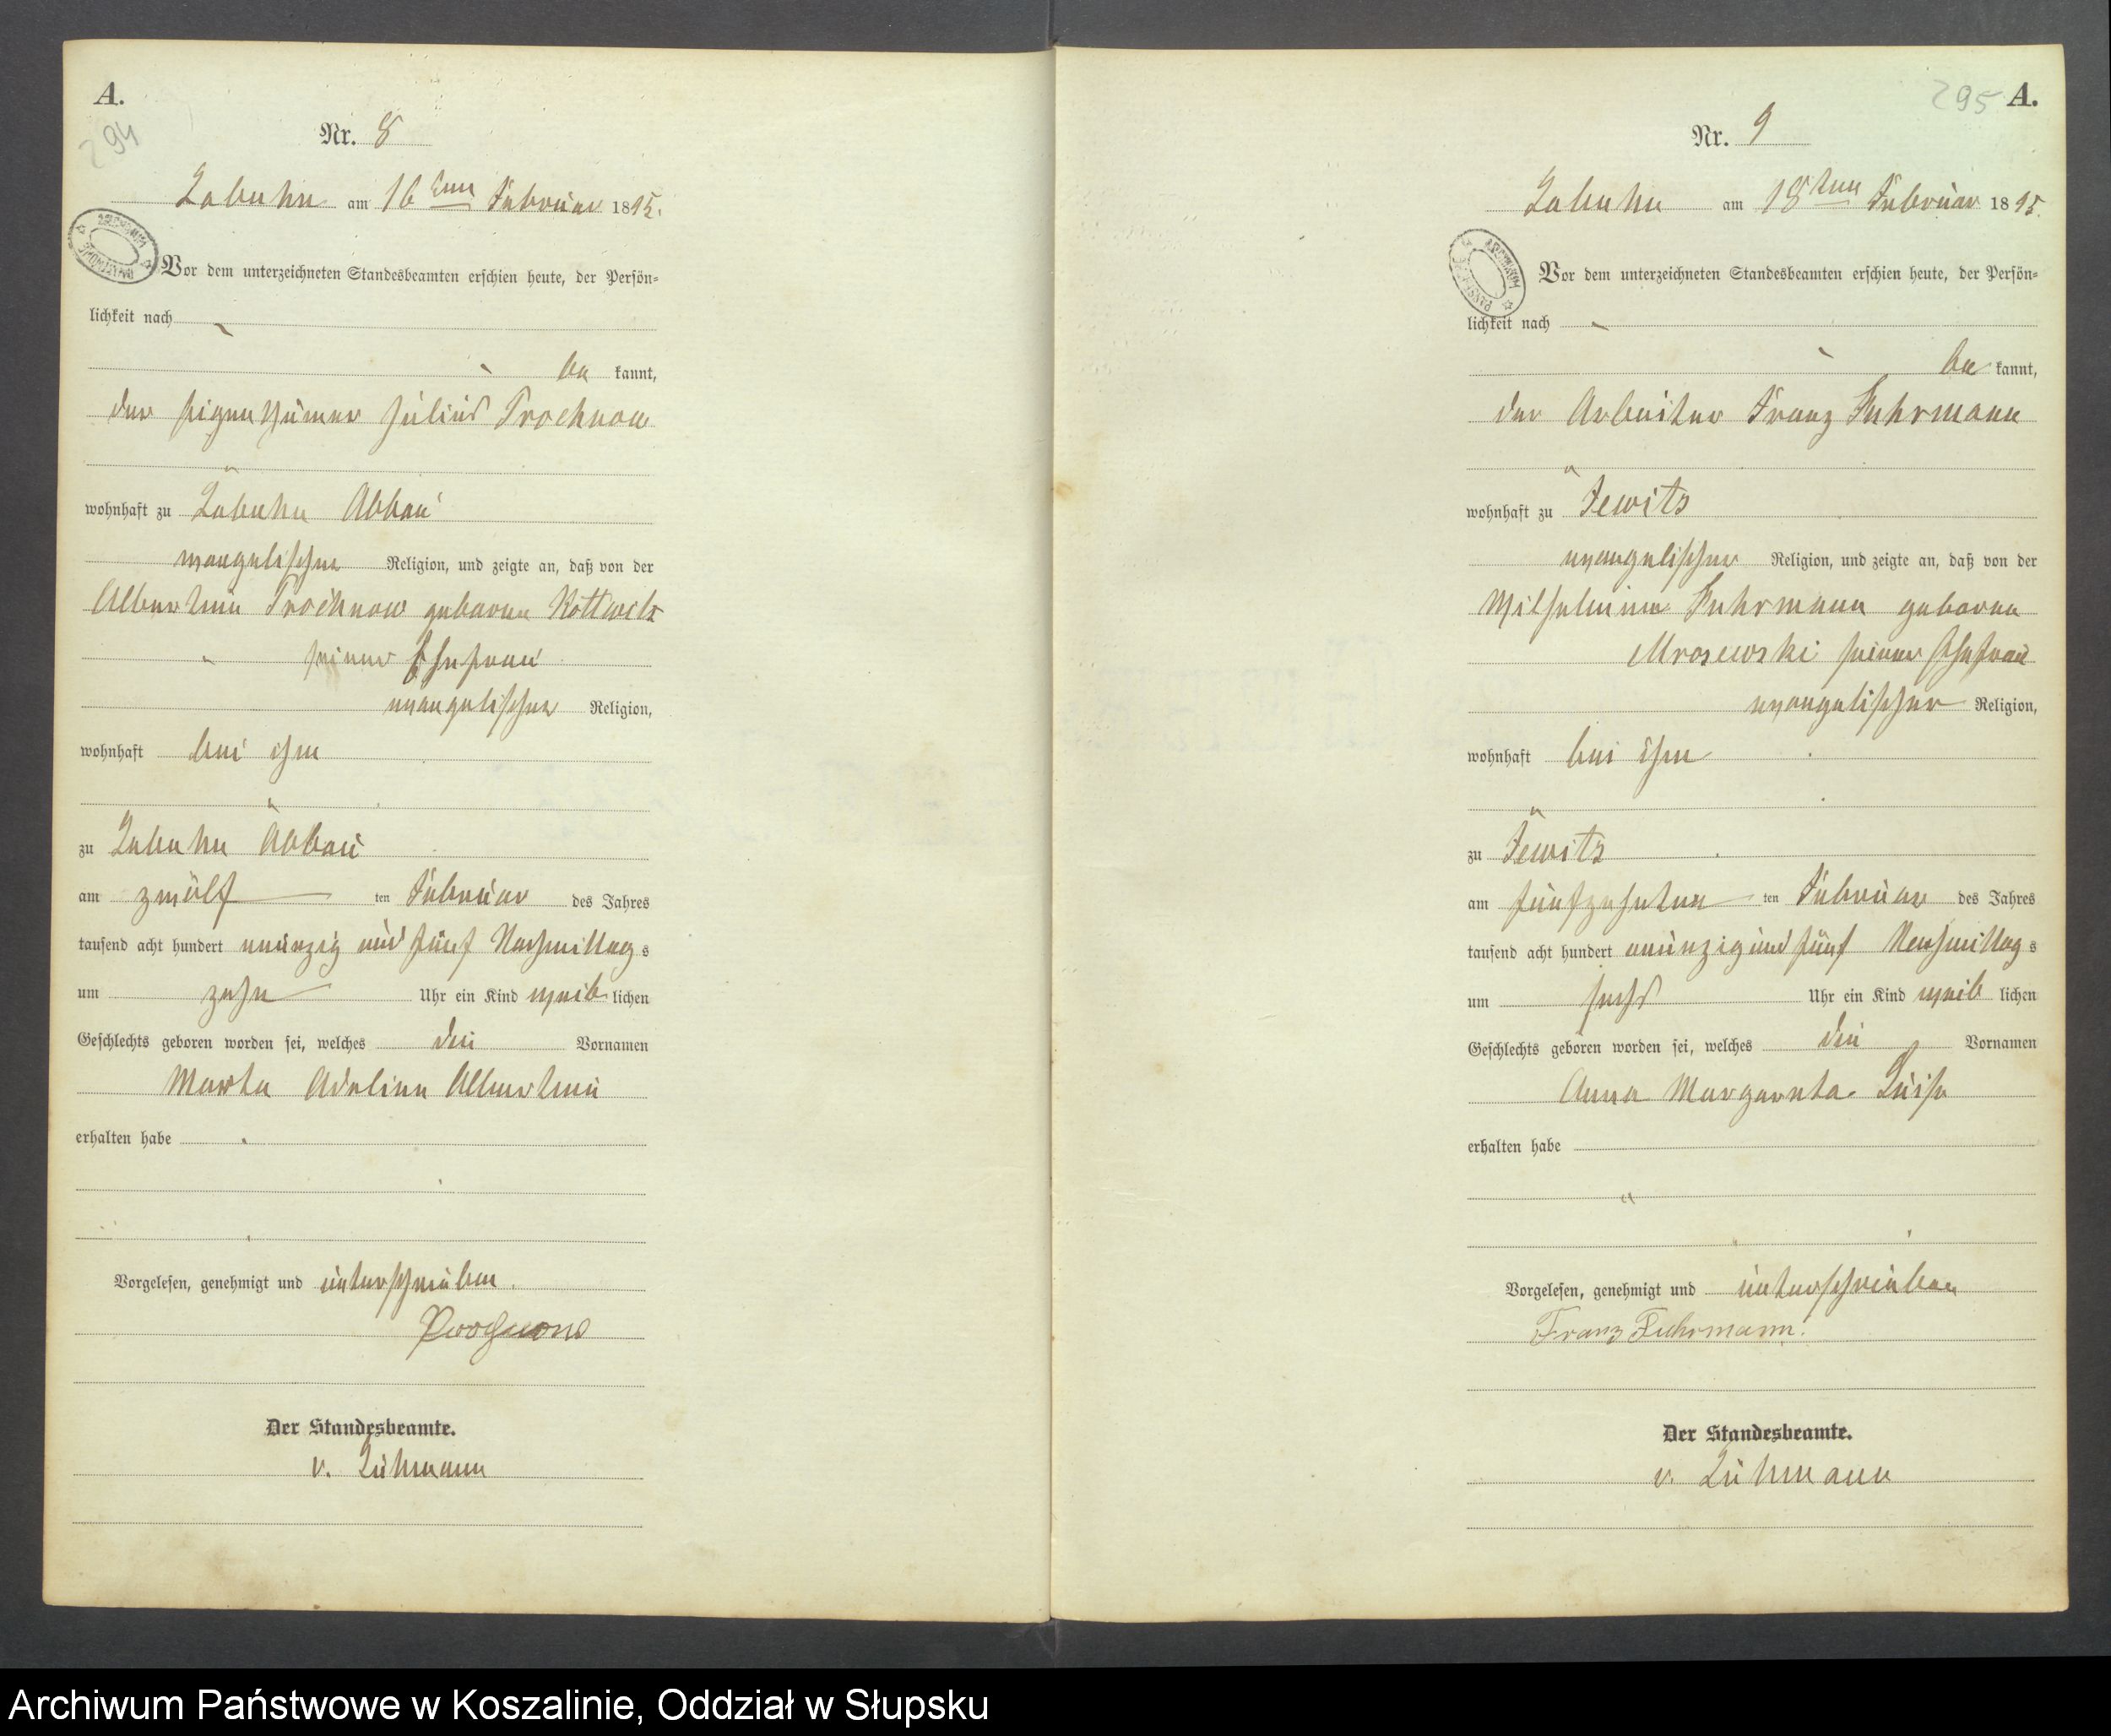 A.
294
Nr. 8
Labuhn am 16ten Februar 1895.
Vor dem unterzeichneten Standesbeamten erschien heute, der Persön-
lichkeit nach
be kannt,
der Eigenthümer Julius Trochnow
wohnhaft zu Labuhn Abbau
evangelischer Religion, und zeigte an, daß von der
Albertine Trochnow geborene Kottwitz
seiner Ehefrau
evangelischer Religion,
wohnhaft bei ihm
zu Labuhn Abbau
am zwölf ten Februar des Jahres
tausend acht hundert neunzig und fünf Nachmittag s
um zehn Uhr ein Kind weib lichen
Geschlechts geboren worden sei, welches die Vornamen
Martha Adeline Albertine
erhalten habe
Vorgelesen, genehmigt und unterschrieben.
Der Standesbeamte.
v. Lühmann
295
A.
Nr. 9
Labuhn am 18ten Februar 1895.
Vor dem unterzeichneten Standesbeamten erschien heute, der Persön-
lichkeit nach
be kannt,
der Arbeiter Franz Fuhrmann
wohnhaft zu Jewitz
evangelischer Religion, und zeigte an, daß von der
Wilhelmine Fuhrmann geborene
Mrosewski seiner Ehefrau
evangelischer Religion,
wohnhaft bei ihm
zu Jewitz
am fünfzehnten ten Februar des Jahres
tausend acht hundert neunzig und fünf Nachmittag s
um sechs Uhr ein Kind weib lichen
Geschlechts geboren worden sei, welches die Vornamen
Anna Margareta Luise
erhalten habe
Vorgelesen, genehmigt und unterschrieben
Franz Fuhrmann.
Der Standesbeamte.
v. Lühmann
Archiwum Państwowe w Koszalinie, Oddział w Słupsku